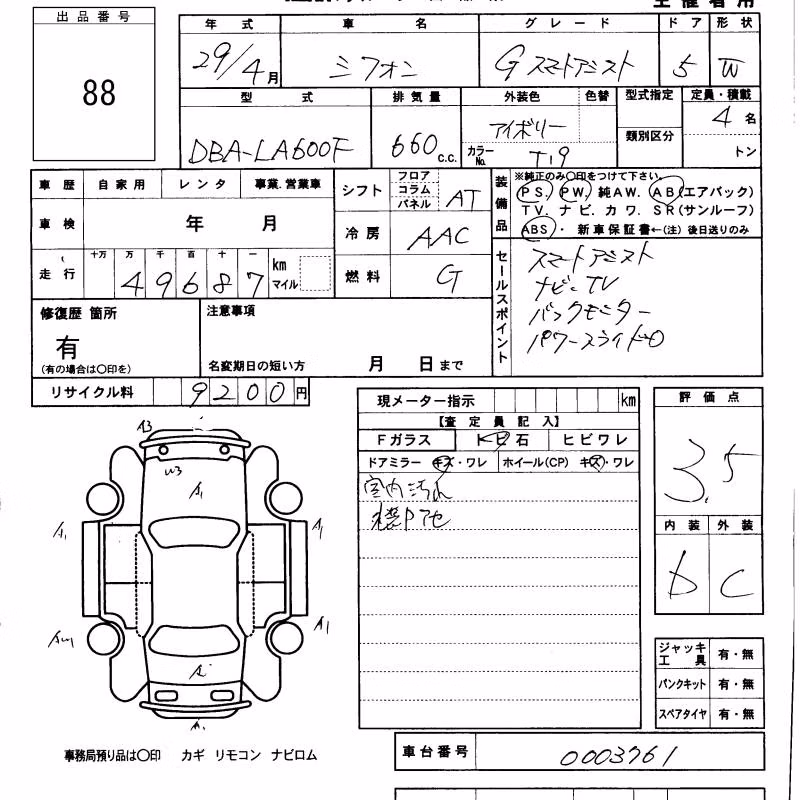 主催者用
出品番号
88
年式 車名 グレード ドア 形状
29/4月 シフォン G スマートアシスト 5 W
型式 排気量 外装色 色替 型式指定 定員・積載
DBA-LA600F 660 c.c. アイボリー 類別区分 4名
カラーNo. T19 トン
車歴 自家用 レンタ 事業.営業車
シフト フロア コラム パネル AT
装備品 ※純正のみ〇印をつけて下さい。
PS. PW. 純AW. AB(エアバック)
TV. ナビ. カワ. SR(サンルーフ)
ABS・ 新車保証書←(注) 後日送りのみ
車検 年 月
冷房 AAC
走行 十万 万 千 百 十 一
49687 km マイル
燃料 G
セールスポイント
スマートアシスト
ナビ・TV
バックモニター
パワースライドD
修復歴 箇所
有
(有の場合は〇印を)
注意事項
名変期日の短い方 月 日まで
リサイクル料 9200円
現メーター指示 km
【査定員記入】
Fガラス トビ石 ヒビワレ
ドアミラー キズ・ワレ ホイール(CP) キズ・ワレ
室内汚れ
評価点
3.5
内装 外装
b C
A3
W3
A1
A1
A1
A1
ジャッキ工具 有・無
パンクキット 有・無
スペアタイヤ 有・無
事務局預り品は〇印 カギ リモコン ナビロム
車台番号 0003761